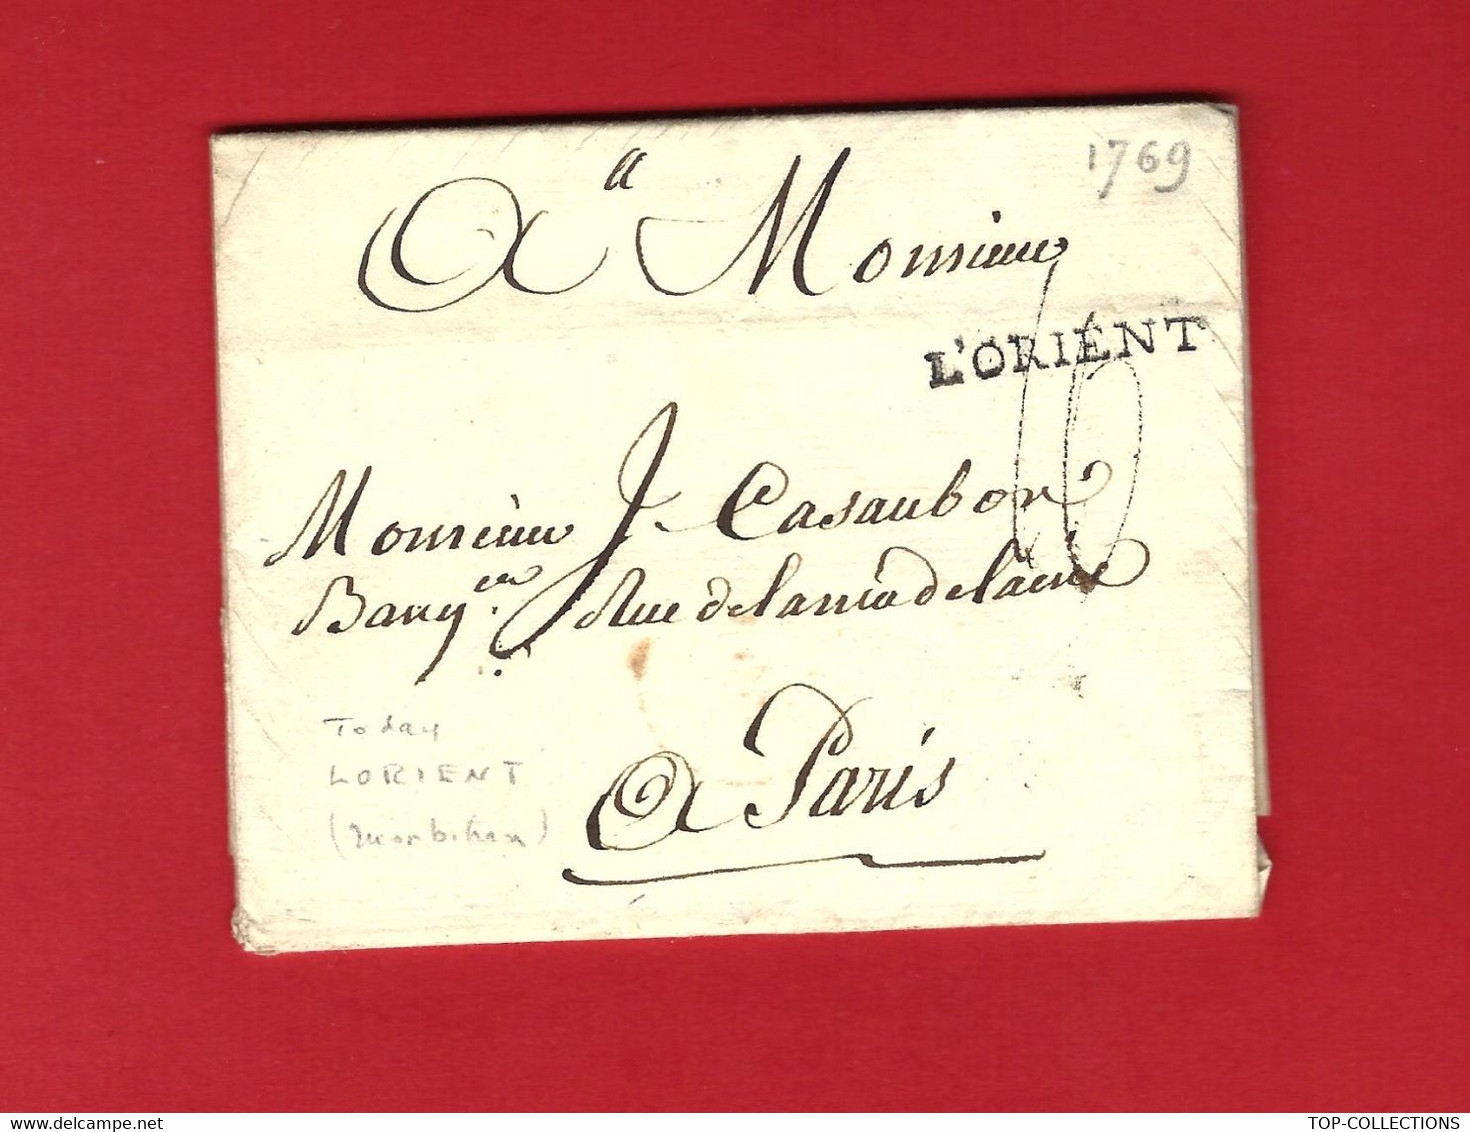 A Monsieur
1769
L'ORIENT
Monsieur J. Casaubon
Banq.er Rue de la
A Paris
Today
LORIENT
(Morbihan)
www.delcampe.net
TOP-COLLECTIONS